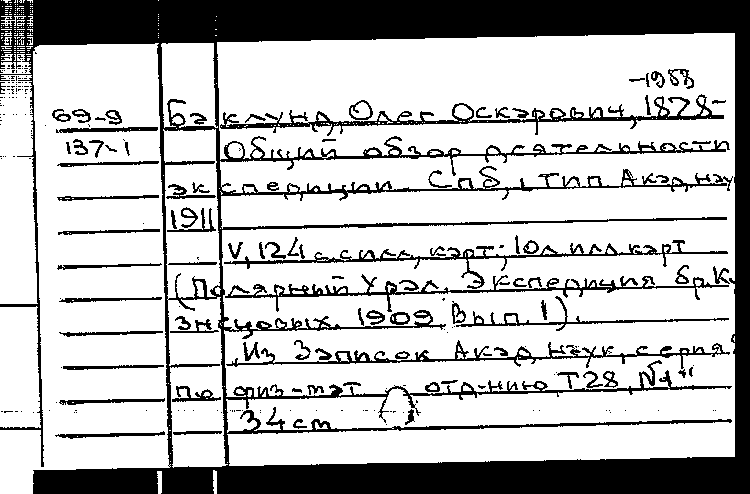 -1958
69-9 Баклунд, Олег Оскарович, 1878-
137-1 Общий обзор деятельности
экспедиции. Спб, тип Акад нау
1911
V, 124 с. с илл, карт; 10л илл карт
(Полярный Урал. Экспедиция бр. К
знецовых. 1909. Вып. 1).
„Из Записок Акад наук, серия
по физ-мат отд-нию, Т 28, №1"
34 cm